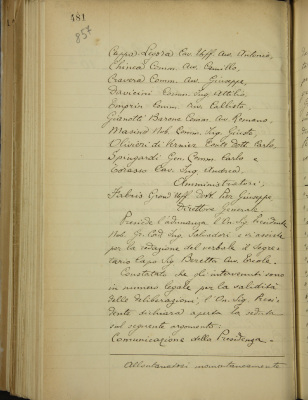 481
857
Cappa-Legora Cav. Uff. Avv. Antonio,
Chinea Comm. Avv. Camillo,
Cravera Comm. Avv. Giuseppe,
Davicini Comm. Ing. Attilio,
Comm. Avv. Callisto,
Gianotti Barone Comm. Avv. Romano,
Masino Nob. Comm. Ing. Giusto,
Olivieri di Vernier Conte Dott. Carlo,
Spingardi Gen. Comm. Carlo e
Torasso Cav. Ing. Andrea,
Amministratori;
Fabris Grand'Uff. Dott. Pier Giuseppe,
Direttore Generale.
Presiede l'adunanza l'On. Sig. Presidente
Nob. Gr. Cord. Ing. Salvadori e vi assiste
per la redazione del verbale il Segre-
tario Capo Sig. Beretta Avv. Ercole.
Constatato che gli intervenuti sono
in numero legale per la validità
delle deliberazioni, l'On. Sig. Presi-
dente dichiara aperta la seduta
sul seguente argomento:
Comunicazione della Presidenza.-
Allontanatosi momentaneamente